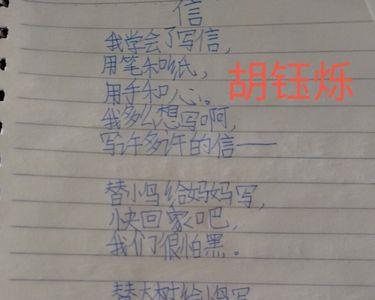 信
我学会了写信，
用笔和纸，
用手和心。
胡钰烁
我多么想写啊，
写许多许多的信——
替小鸟给妈妈写，
快回家吧，
我们很怕黑。